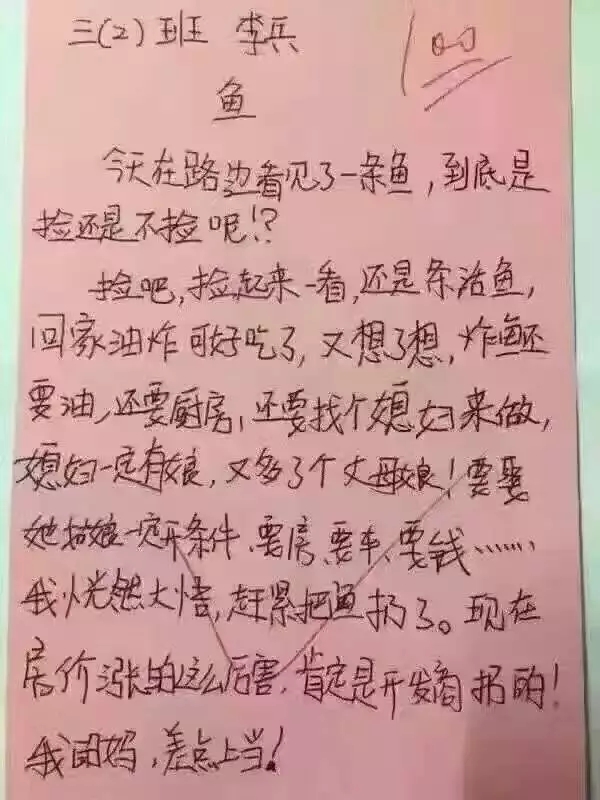 三(2)班 李兵
100
鱼
今天在路边看见了一条鱼,到底是
捡还是不捡呢!?
捡吧,捡起来一看,还是条活鱼,
回家油炸可好吃了,又想了想,炸鱼还
要油,还要厨房,还要找个媳妇来做,
媳妇一定有娘,又多了个丈母娘!要娶
她娘一定开条件,要房、要车、要钱……
我恍然大悟,赶紧把鱼扔了。现在
房价涨的这么厉害,肯定是开发商扔的!
我的妈,差点上当!